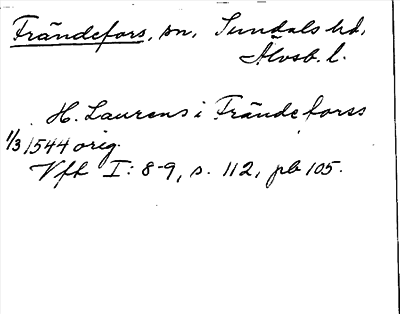 Frändefors, sn, Sundals hd,
Älvsb. l.
H. Laurens i Frändeforss
1/3 1544 orig.
Vfh I: 8-9, s. 112, pb 105.